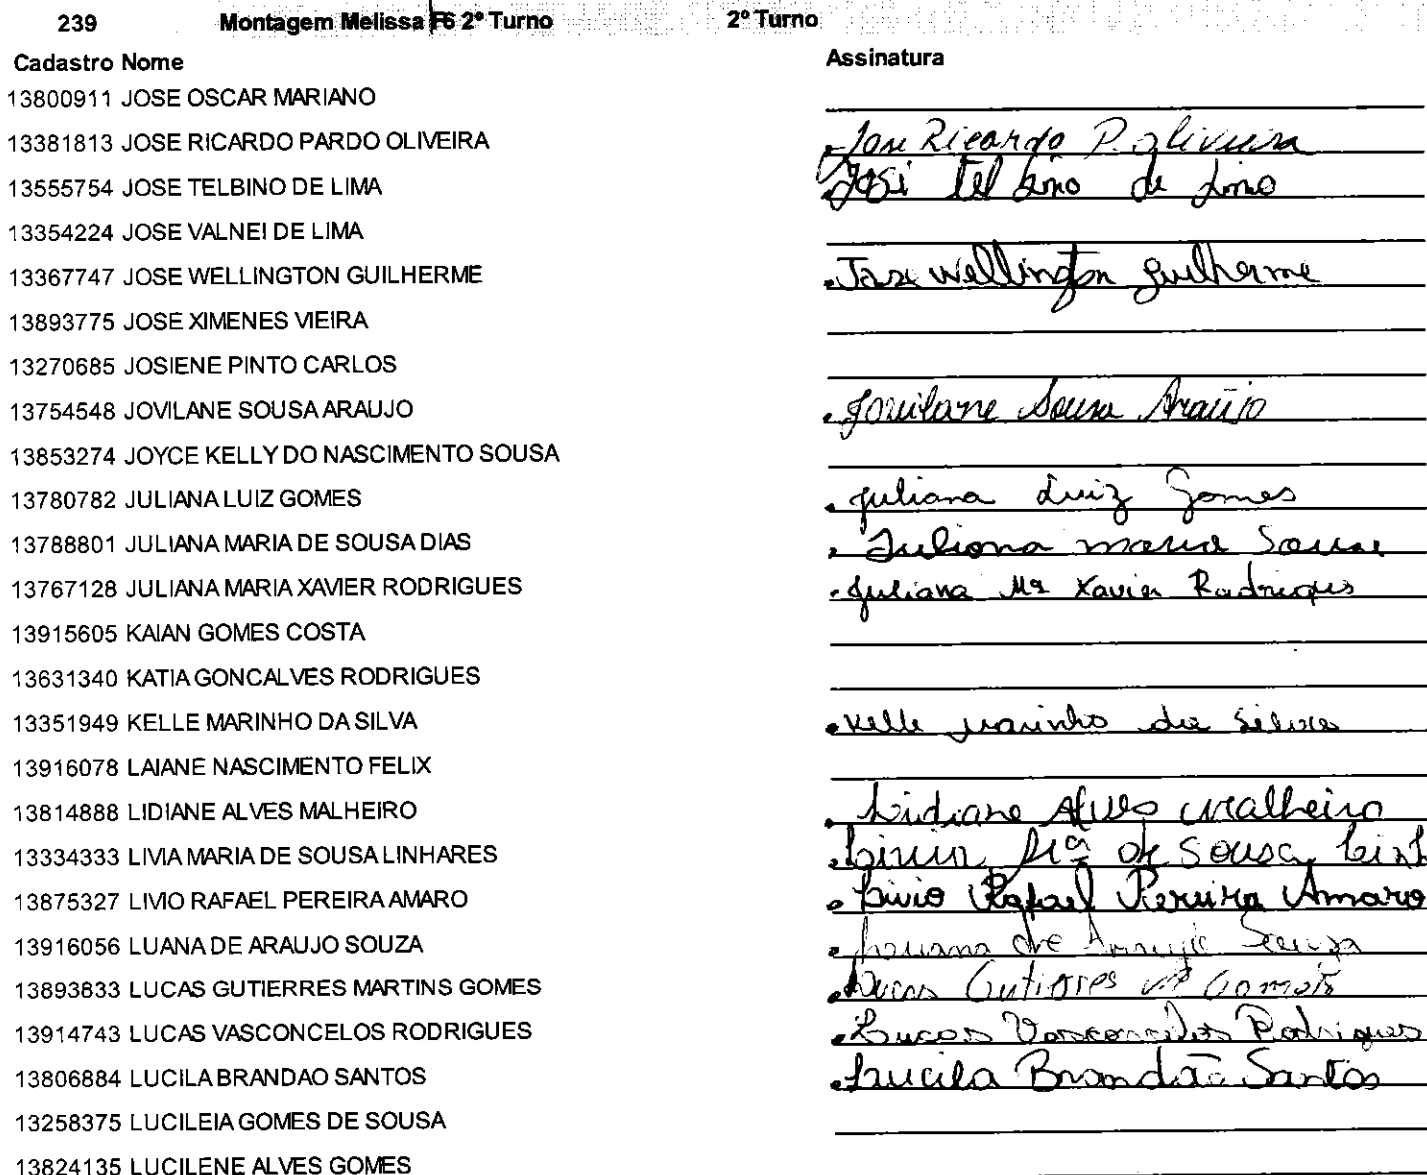 239 Montagem Melissa F6 2º Turno 2º Turno
Cadastro Nome Assinatura
13800911 JOSE OSCAR MARIANO
13381813 JOSE RICARDO PARDO OLIVEIRA Jose Ricardo P. Oliveira
13555754 JOSE TELBINO DE LIMA José telbino de Lima
13354224 JOSE VALNEI DE LIMA
13367747 JOSE WELLINGTON GUILHERME Jose Wellington Guilherme
13893775 JOSE XIMENES VIEIRA
13270685 JOSIENE PINTO CARLOS
13754548 JOVILANE SOUSA ARAUJO Jovilane Sousa Araújo
13853274 JOYCE KELLY DO NASCIMENTO SOUSA
13780782 JULIANA LUIZ GOMES Juliana Luiz Gomes
13788801 JULIANA MARIA DE SOUSA DIAS Juliana maria Sousa
13767128 JULIANA MARIA XAVIER RODRIGUES Juliana Mª Xavier Rodrigues
13915605 KAIAN GOMES COSTA
13631340 KATIA GONCALVES RODRIGUES
13351949 KELLE MARINHO DA SILVA Kelle marinho da Silva
13916078 LAIANE NASCIMENTO FELIX
13814888 LIDIANE ALVES MALHEIRO Lidiane Alves malheiro
13334333 LIVIA MARIA DE SOUSA LINHARES Livia Mª de Sousa
13875327 LIVIO RAFAEL PEREIRA AMARO Livio Rafael Pereira Amaro
13916056 LUANA DE ARAUJO SOUZA Luana de Araujo Souza
13893833 LUCAS GUTIERRES MARTINS GOMES Lucas Gutierres Gomes
13914743 LUCAS VASCONCELOS RODRIGUES Lucas Vasconcelos Rodrigues
13806884 LUCILA BRANDAO SANTOS Lucila Brandão Santos
13258375 LUCILEIA GOMES DE SOUSA
13824135 LUCILENE ALVES GOMES